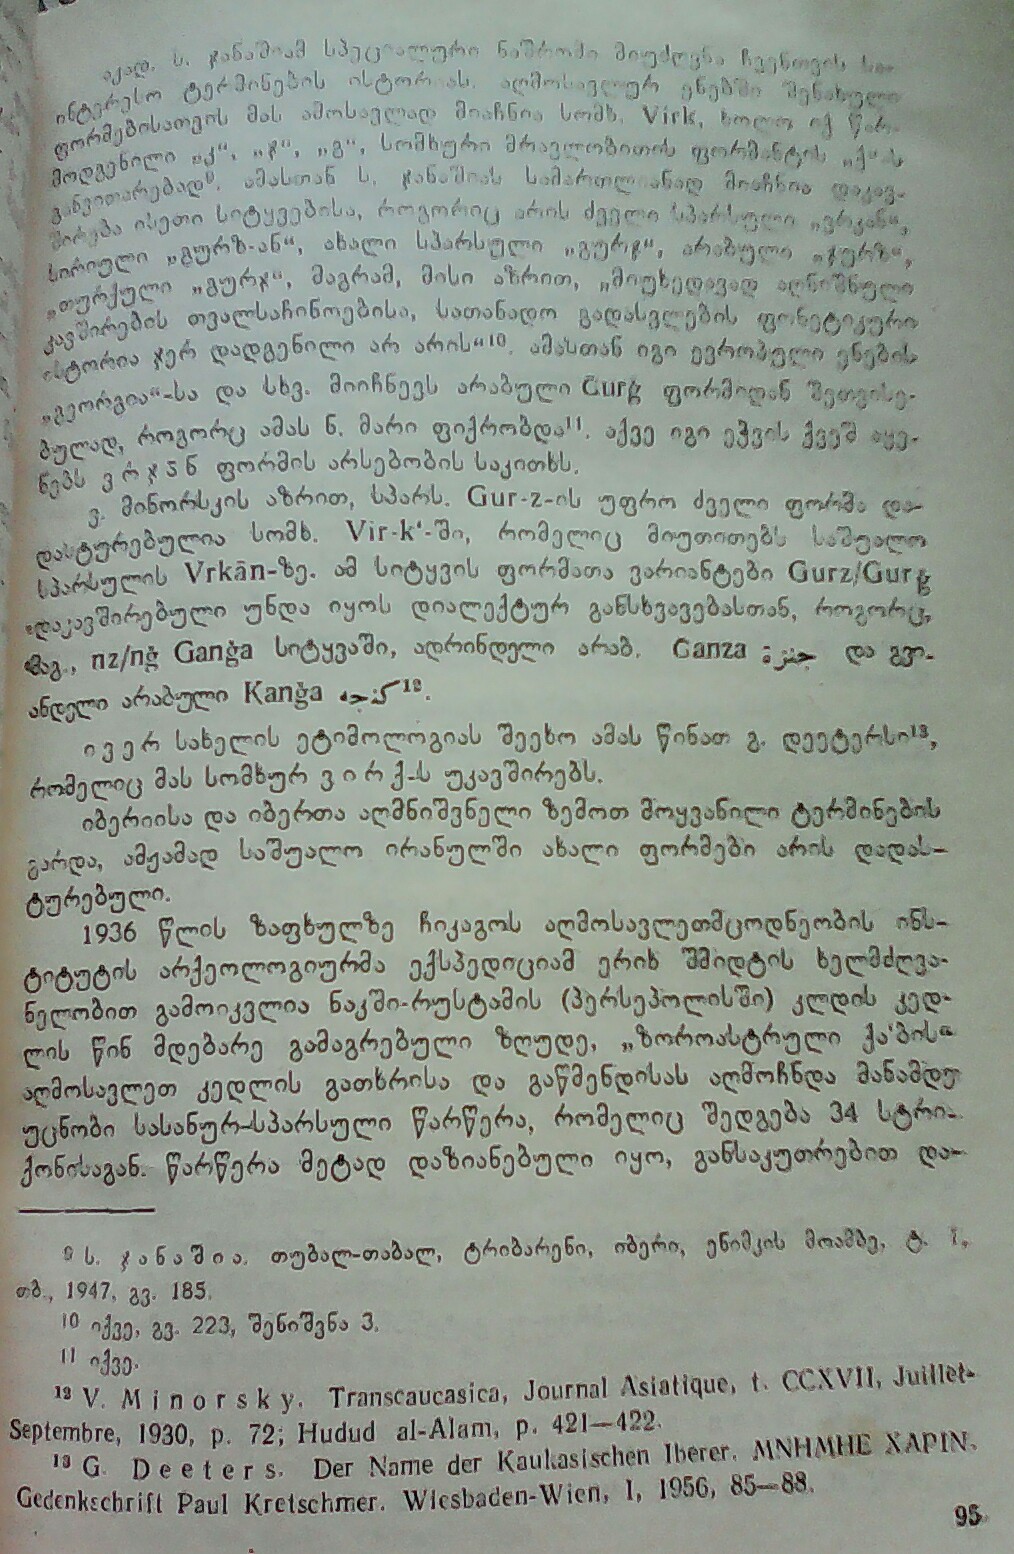 აკად. ს. ჯანაშიამ სპეციალური ნაშრომი მიუძღვნა ჩვენთვის სა-
ინტერესო ტერმინების ისტორიას. აღმოსავლურ ენებში შენახული
ფორმებისათვის მას ამოსავლად მიაჩნია სომხ. Virk, ხოლო იქ წარ-
მოდგენილი „კ“, „ჯ“, „გ“, სომხური მრავლობითის ფორმანტის „ქ“-ს
განვითარებად⁹. ამასთან ს. ჯანაშიას სამართლიანად მიაჩნია დაკავ-
შირება ისეთი სიტყვებისა, როგორიც არის ძველი სპარსული „ვრკან“,
სირიული „გურზ-ან“, ახალი სპარსული „გურჯ“, არაბული „ჯურზ“,
თურქული „გურჯ“, მაგრამ, მისი აზრით, „მიუხედავად აღნიშნული
კავშირების თვალსაჩინოებისა, სათანადო გადასვლების ფონეტიკური
ისტორია ჯერ დადგენილი არ არის“¹⁰. ამასთან იგი ევროპული ენების
„გეორგია“-სა და სხვ. მიიჩნევს არაბული Gurğ ფორმიდან შეთვისე-
ბულად, როგორც ამას ნ. მარი ფიქრობდა¹¹. აქვე იგი ეჭვის ქვეშ აყე-
ნებს ფორმის არსებობის საკითხს.
ვ. მინორსკის აზრით, სპარს. Gur-z-ის უფრო ძველი ფორმა და-
დასტურებულია სომხ. Vir-k‘-ში, რომელიც მიუთითებს საშუალო
სპარსულის Vrkān-ზე. ამ სიტყვის ფორმათა ვარიანტები Gurz/Gurğ
დაკავშირებული უნდა იყოს დიალექტურ განსხვავებასთან, როგორც,
მაგ., nz/nğ Ganğa სიტყვაში, ადრინდელი არაბ. Ganza და გვი-
ანდელი არაბული Kanğa ¹².
ი ვ ე რ სახელის ეტიმოლოგიას შეეხო ამას წინათ გ. დეეტერსი¹³,
რომელიც მას სომხურ ვ ი რ ქ-ს უკავშირებს.
იბერიისა და იბერთა აღმნიშვნელი ზემოთ მოყვანილი ტერმინების
გარდა, ამჟამად საშუალო ირანულში ახალი ფორმები არის დადას-
ტურებული.
1936 წლის ზაფხულზე ჩიკაგოს აღმოსავლეთმცოდნეობის ინს-
ტიტუტის არქეოლოგიურმა ექსპედიციამ ერიხ შმიდტის ხელმძღვა-
ნელობით გამოიკვლია ნაკში-რუსტამის (პერსეპოლისში) კლდის კედ-
ლის წინ მდებარე გამაგრებული ზღუდე, „ზოროასტრული ქა‘ბის“
აღმოსავლეთ კედლის გათხრისა და გაწმენდისას აღმოჩნდა მანამდე
უცნობი სასანურ-სპარსული წარწერა, რომელიც შედგება 34 სტრი-
ქონისაგან. წარწერა მეტად დაზიანებული იყო, განსაკუთრებით და-
⁹ ს. ჯ ა ნ ა შ ი ა. თუბალ-თაბალ, ტიბარენი, იბერი, ენიმკის მოამბე, ტ. I,
თბ., 1947, გვ. 185.
¹⁰ იქვე, გვ. 223, შენიშვნა 3.
¹¹ იქვე.
¹² V. M i n o r s k y. Transcaucasica, Journal Asiatique, t. CCXVII, Juillet-
Septembre, 1930, p. 72; Hudud al-Alam, p. 421—422.
¹³ G. D e e t e r s. Der Name der Kaukasischen Iberer. MNHMHE XAPIN.
Gedenkschrift Paul Kretschmer. Wiesbaden-Wien, I, 1956, 85—88.
95